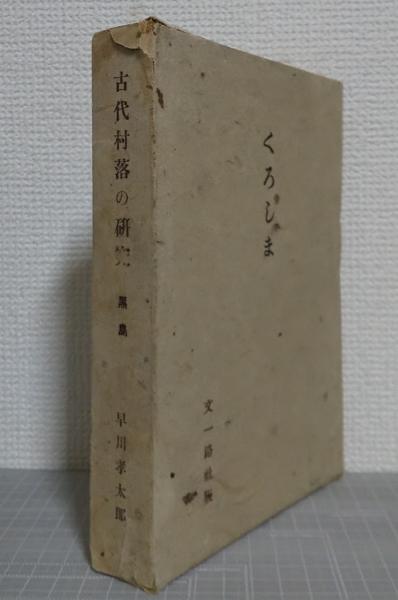 古代村落の研究
黒島
早川孝太郎
くろしま
文一路社版